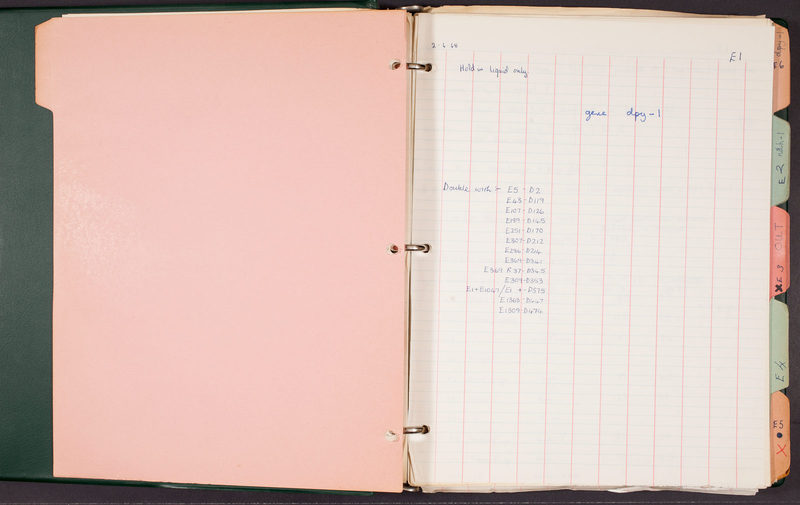 E1
Hold in liquid only
gene dpy-1
Double with :- E5 - D2
E43-D119
E107-D126
E189-D145
E251-D170
E307-D212
E364-D341
E364 R37-D345
E309-D353
E1+E1047/E1 + -D575
E1368-D447
E1309-D474
E6 dpy-1
E2
X E3 OUT
E4
E5
X